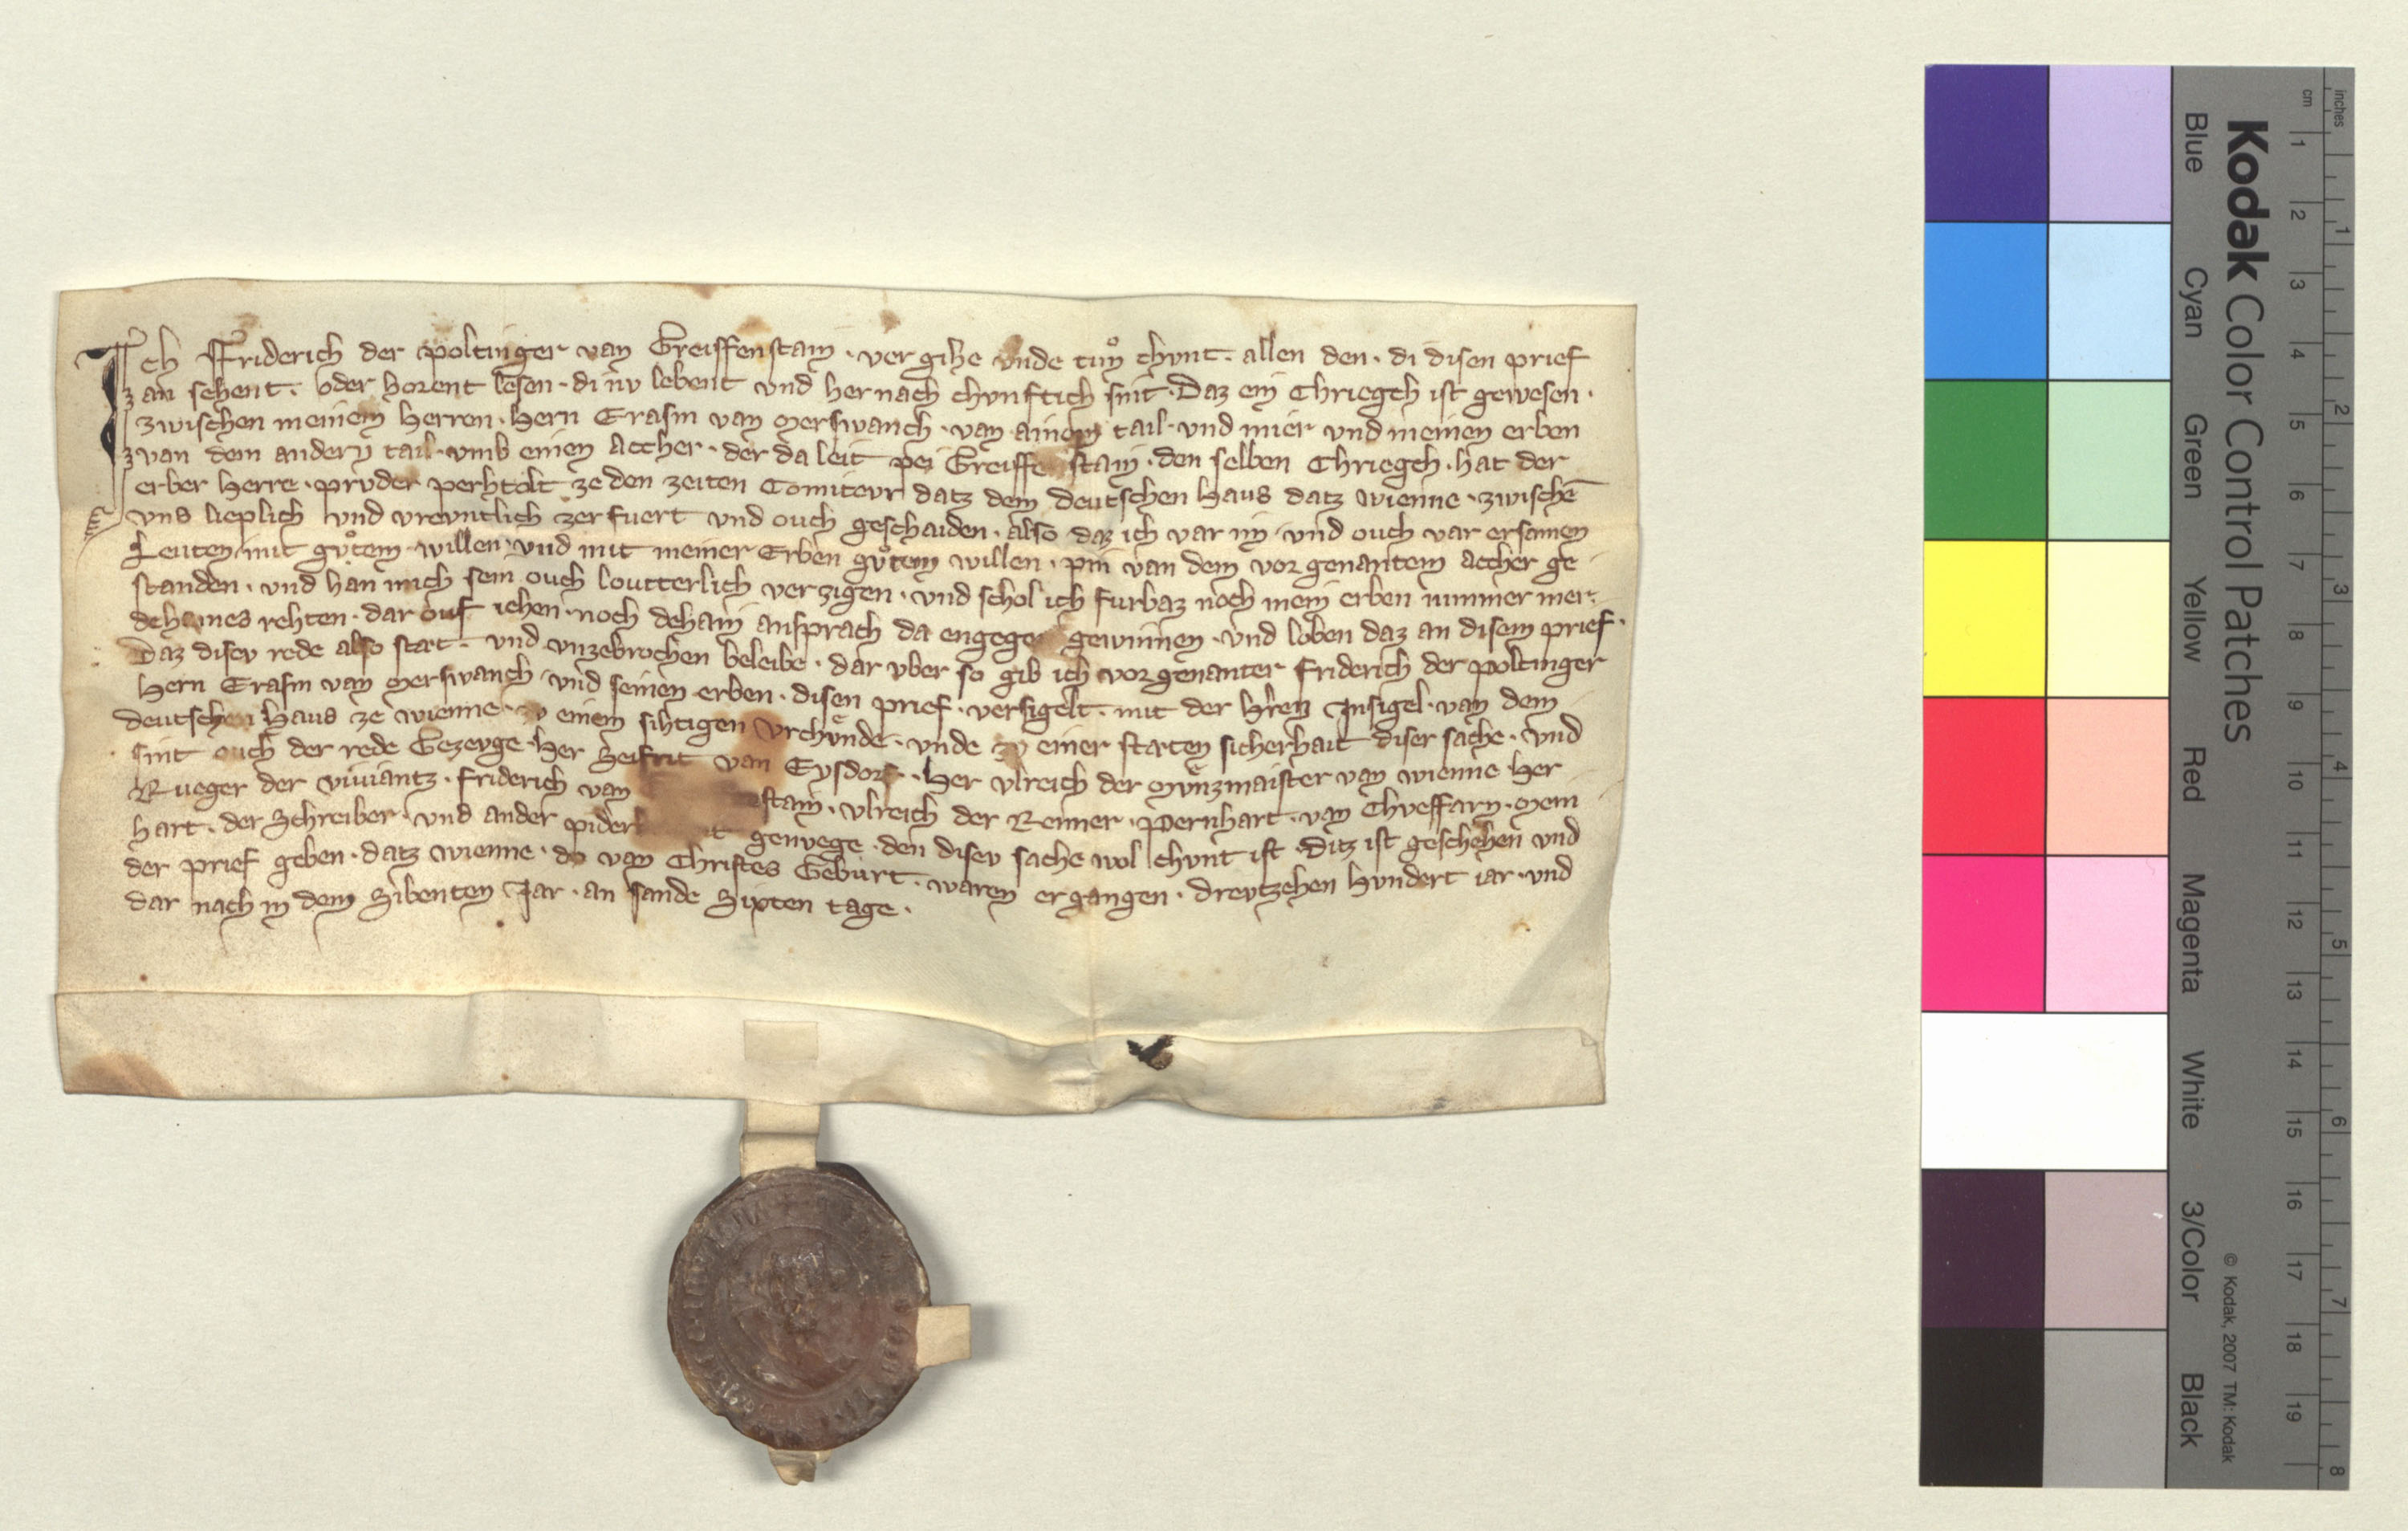 Ich Friderich der Poltinger van Greiffenstain · ver gihe vnde tuͦn chvnt · allen den · di disen prief
an sehent · oder horent lesen · di nv lebent vnd her nach chvnftich sint · Daz ein Chriegch ist gewesen ·
zwischen meinem Herren · Hern Erasm van Merswanch · van ainem tail · vnd mier vnd meinen erben
van dem andern tail · vmb einen Accher · der da leit pei Greiffenstain · den selben Chriegch · hat der
erber Herre · prvder perhtolt ze den zeiten Comitevr datz dem deutschen Haus datz wienne · zwischē
vns lieplich vnd vrevntlich zerfuert vnd ouch geschaiden · also daz ich var im · vnd ouch var ersamen
Leuten mit guͦtem willen · vnd mit meiner Erben guͦtem willen · pin van dem vorgenantem accher ge
standen · vnd han mich sein ouch loutterlich verzigen · vnd schol ich furbaz noch mein erben nimmer mer ·
dehaines rehten · dar ouf iehen · noch dehain ansprach da engegen gewinnen · vnd loben daz an disem prief ·
Daz disev rede also stæt · vnd vnzebrochen beleibe · dar vber so gib ich vorgenanter Friderich der Poltinger
Hern Erasm van Merswanch vnd seinen erben · disen prief · versigelt · mit der Hren Insigel · van dem
deutschen Haus ze wienne · zv einem sihtigen Vrchvnde · vnde zv einer stæten sicherhait diser sache · vnd
sint ouch der rede Gezevge · Her Seifrit van Eysdorf · Her vlreich der Mvnzmaister van wienne · Her
Rueger der viviantz · Friderich van stain · vlreich der Renner · Pernhart · van Chveffarn · Mein
hart · der Schreiber · vnd ander pider genvege · den disev sache wol chvnt ist · Ditz ist geschehen vnd
der prief geben · datz wienne · do van Christes Gebürt · waren ergangen · drevtzehen Hvndert iar · vnd
dar nach in dem Sibenten Jar · an sande Sixten tage ·
Kodak Color Control Patches
© Kodak, 2007 TM: Kodak
Blue Cyan Green Yellow Red Magenta White 3/Color Black
inches 1 2 3 4 5 6 7 8
cm 1 2 3 4 5 6 7 8 9 10 11 12 13 14 15 16 17 18 19